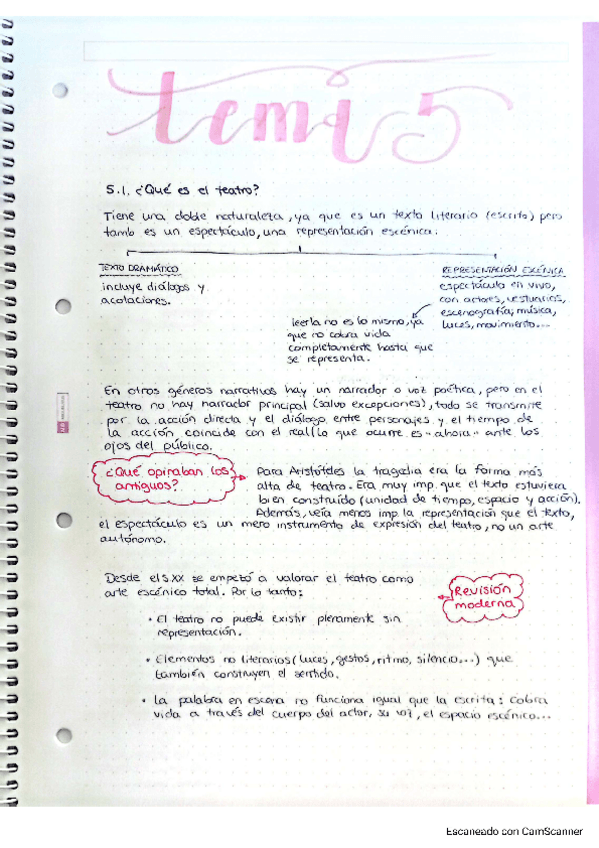 tema 5
5.1. ¿Qué es el teatro?
Tiene una doble naturaleza, ya que es un texto literario (escrito) pero
tamb es un espectáculo, una representación escénica.
TEXTO DRAMÁTICO
incluye diálogos y
acotaciones.
REPRESENTACIÓN ESCÉNICA
espectáculo en vivo,
con actores, vestuarios,
escenografía, música,
luces, movimiento...
leerla no es lo mismo, ya
que no cobra vida
completamente hasta que
se representa.
En otros géneros narrativos hay un narrador o voz poética, pero en el
teatro no hay narrador principal (salvo excepciones), todo se transmite
por la acción directa y el diálogo entre personajes y el tiempo de
la acción coincide con el real (lo que ocurre es "ahora" ante los
ojos del público.
¿Qué opinaban los
antiguos?
Para Aristóteles la tragedia era la forma más
alta de teatro. Era muy imp. que el texto estuviera
bien construido (unidad de tiempo, espacio y acción).
Además, veía menos imp. la representación que el texto,
el espectáculo es un mero instrumento de expresión del teatro, no un arte
autónomo.
Desde el S.XX se empezó a valorar el teatro como
arte escénico total. Por lo tanto:
Revisión
moderna
• El teatro no puede existir plenamente sin
representación.
• Elementos no literarios (luces, gestos, ritmo, silencio...) que
también construyen el sentido.
• La palabra en escena no funciona igual que la escrita: cobra
vida a través del cuerpo del actor, su voz, el espacio escénico...
Escaneado con CamScanner